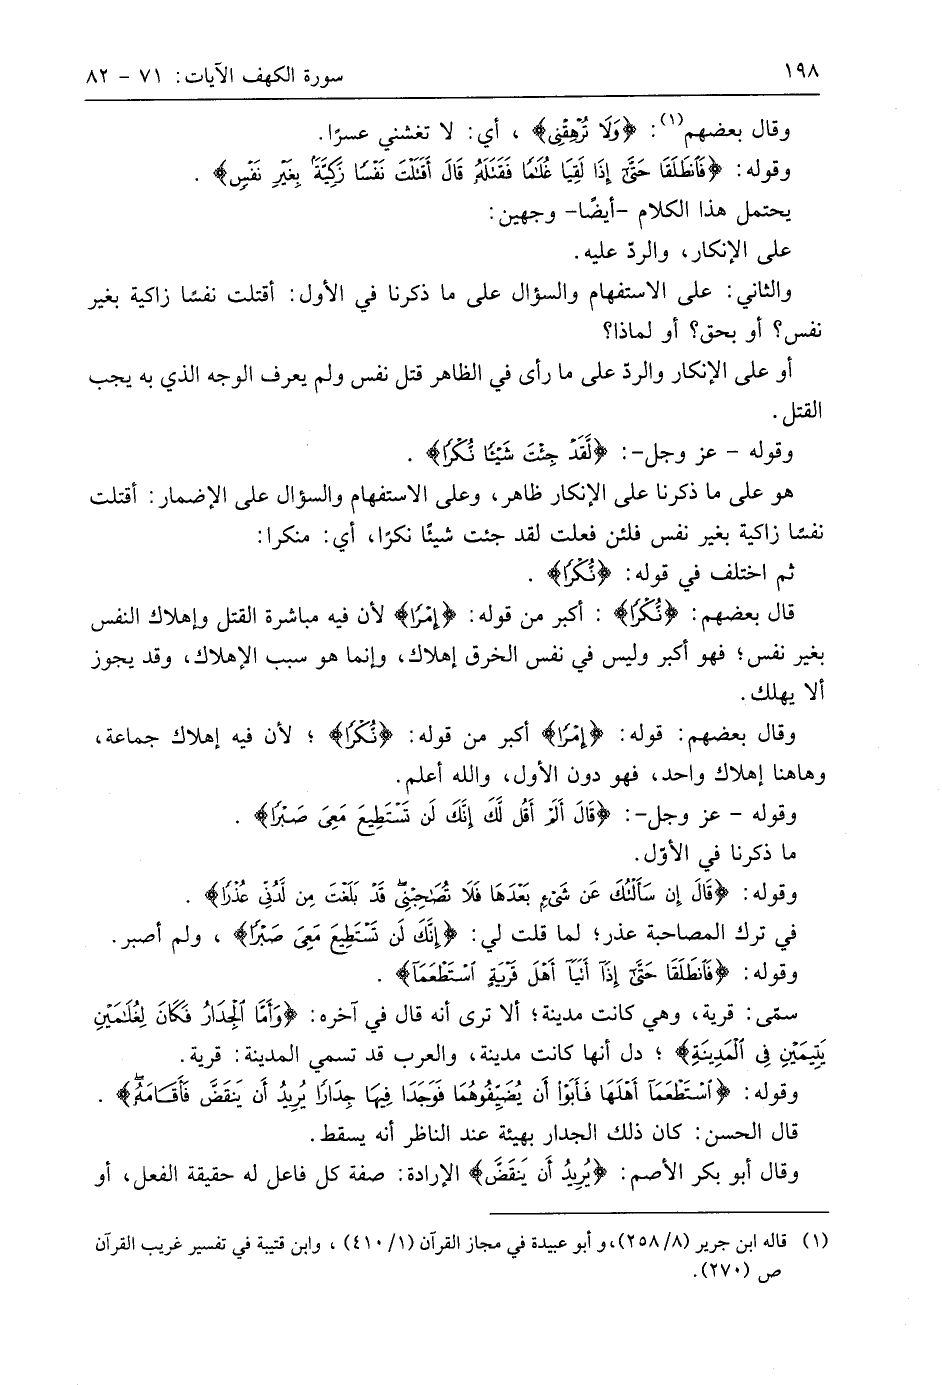 ١٩٨ سورة الكهف الآيات: ٧١ - ٨٢
وقال بعضهم(١): ﴿وَلَا تُرْهِقْنِي﴾ ، أي: لا تغشني عسرًا.
وقوله: ﴿فَٱنطَلَقَا حَتَّىٰٓ إِذَا لَقِيَا غُلَٰمًا فَقَتَلَهُۥ قَالَ أَقَتَلْتَ نَفْسًا زَكِيَّةَۢ بِغَيْرِ نَفْسٍ﴾ .
يحتمل هذا الكلام -أيضًا- وجهين:
على الإنكار، والردّ عليه.
والثاني: على الاستفهام والسؤال على ما ذكرنا في الأول: أقتلت نفسًا زاكية بغير
نفس؟ أو بحق؟ أو لماذا؟
أو على الإنكار والردّ على ما رأى في الظاهر قتل نفس ولم يعرف الوجه الذي به يجب
القتل.
وقوله - عز وجل-: ﴿لَّقَدْ جِئْتَ شَيْـًٔا نُّكْرًا﴾ .
هو على ما ذكرنا على الإنكار ظاهر، وعلى الاستفهام والسؤال على الإضمار: أقتلت
نفسًا زاكية بغير نفس فلئن فعلت لقد جئت شيئًا نكرًا، أي: منكرا:
ثم اختلف في قوله: ﴿نُّكْرًا﴾ .
قال بعضهم: ﴿نُّكْرًا﴾ : أكبر من قوله: ﴿إِمْرًا﴾ لأن فيه مباشرة القتل وإهلاك النفس
بغير نفس؛ فهو أكبر وليس في نفس الخرق إهلاك، وإنما هو سبب الإهلاك، وقد يجوز
ألا يهلك.
وقال بعضهم: قوله: ﴿إِمْرًا﴾ أكبر من قوله: ﴿نُّكْرًا﴾ ؛ لأن فيه إهلاك جماعة،
وهاهنا إهلاك واحد، فهو دون الأول، والله أعلم.
وقوله - عز وجل-: ﴿قَالَ أَلَمْ أَقُل لَّكَ إِنَّكَ لَن تَسْتَطِيعَ مَعِىَ صَبْرًا﴾ .
ما ذكرنا في الأوّل.
وقوله: ﴿قَالَ إِن سَأَلْتُكَ عَن شَىْءٍۭ بَعْدَهَا فَلَا تُصَٰحِبْنِى ۖ قَدْ بَلَغْتَ مِن لَّدُنِّى عُذْرًا﴾ .
في ترك المصاحبة عذر؛ لما قلت لي: ﴿إِنَّكَ لَن تَسْتَطِيعَ مَعِىَ صَبْرًا﴾ ، ولم أصبر.
وقوله: ﴿فَٱنطَلَقَا حَتَّىٰٓ إِذَآ أَتَيَآ أَهْلَ قَرْيَةٍ ٱسْتَطْعَمَآ﴾ .
سمّى: قرية، وهي كانت مدينة؛ ألا ترى أنه قال في آخره: ﴿وَأَمَّا ٱلْجِدَارُ فَكَانَ لِغُلَٰمَيْنِ
يَتِيمَيْنِ فِى ٱلْمَدِينَةِ﴾ ؛ دل أنها كانت مدينة، والعرب قد تسمي المدينة: قرية.
وقوله: ﴿ٱسْتَطْعَمَآ أَهْلَهَا فَأَبَوْا۟ أَن يُضَيِّفُوهُمَا فَوَجَدَا فِيهَا جِدَارًا يُرِيدُ أَن يَنقَضَّ فَأَقَامَهُۥ ۖ﴾ .
قال الحسن: كان ذلك الجدار بهيئة عند الناظر أنه يسقط.
وقال أبو بكر الأصم: ﴿يُرِيدُ أَن يَنقَضَّ﴾ الإرادة: صفة كل فاعل له حقيقة الفعل، أو
(١) قاله ابن جرير (٨/ ٢٥٨)، و أبو عبيدة في مجاز القرآن (١/ ٤١٠) ، وابن قتيبة في تفسير غريب القرآن
ص (٢٧٠).